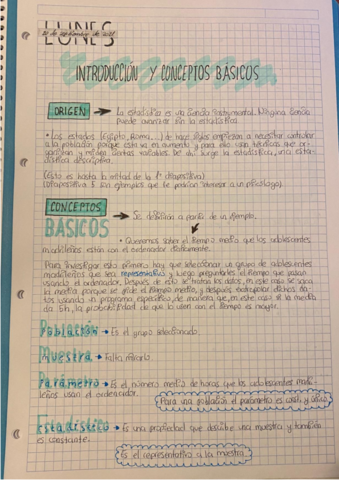 LUNES
INTRODUCCIÓN Y CONCEPTOS BÁSICOS
ORIGEN → La estadística es una ciencia instrumental. Ninguna ciencia
puede avanzar sin la estadística.
• Los estados (Egipto, Roma...) de hace siglos empiezan a necesitar controlar
a la población porque esta va en aumento y para ello usan técnicas que
y miden ciertas variables. De ahí surge la estadística, una
descriptiva.
(Esto es hasta la mitad de la 1ª diapositiva)
(Diapositiva 5 son ejemplos que le podrían interesar a un psicólogo)
CONCEPTOS
BÁSICOS → Se definirán a partir de un ejemplo.
• Queremos saber el tiempo medio que los adolescentes
madrileños están con el ordenador
Para investigar esto primero hay que seleccionar un grupo de adolescentes
madrileños que sea representativo y luego preguntarles el tiempo que pasan
usando el ordenador. Después de esto se tratan los datos, en este caso se saca
la media porque se pide el tiempo medio, y después extrapolar dichos
usando un programa específico de manera que, en este caso si la media
da 5h, la probabilidad de que la usen con el tiempo es mayor.
Población → Es el grupo seleccionado.
Muestra → Falta mirarlo
Parámetro → Es el número medio de horas que los adolescentes
usan el ordenador.
Para una población el parámetro es
Estadístico → Es una propiedad que describe una muestra y también
es constante.
Es el representativo a la muestra